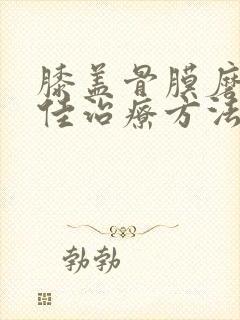 膝盖骨膜磨
佳治疗方法
勃勃